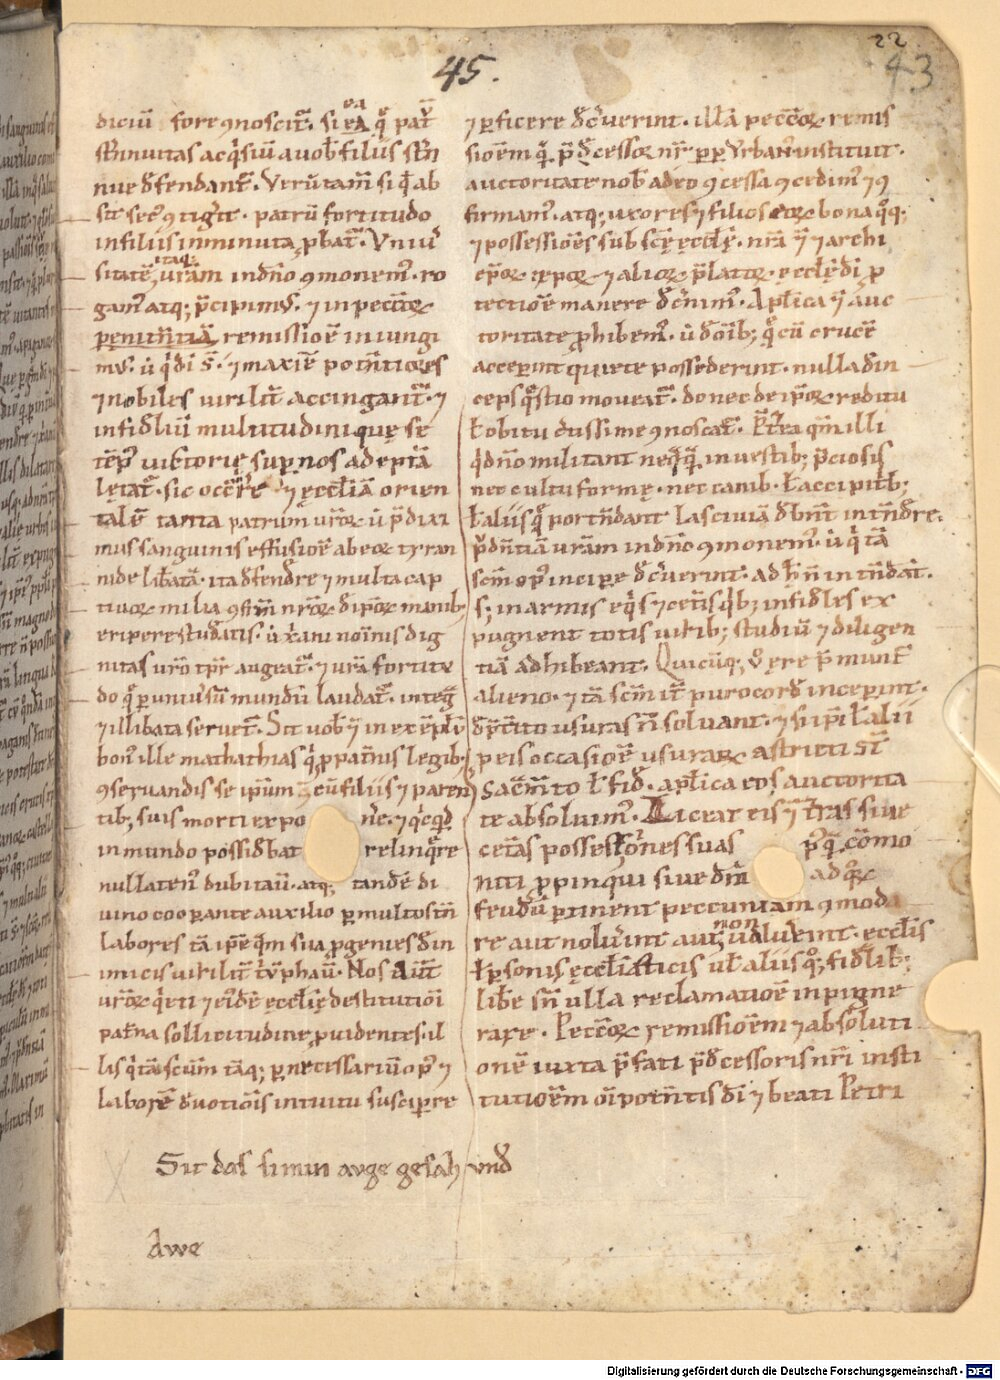 22
43
45.
diciū fore ꝯnoscit᷑. si ea q̊ pat̄
strinuitas acq̇siuit auob filiis strin
nue defendant᷑. Verūtam̄ si qd̄ ab
sit sec9 ꝯtig̓it. patrū fortitudo
in filiis inminuta ꝓbat᷑. Vniu̓
sitatē itaq; uram̄ in dn̄o ꝯmonem9. ro
gam9 atq; p̄cipim9. ⁊ in peccatoꝝ
penitn̄tiā remissionē iniungi
m9. ut qi di sn̄t. ⁊ maxime potn̄tiores
⁊ nobiles uirilit̄ accingant᷑. ⁊
infidliū multitudini quę se
tēp̄ uictorię sup nos adeptā
lętat᷑. sic occr̄re ⁊ ęccliā orien
talē tanta patrum ur̄oꝝ ut p̄dixi
mus sanguinis effusione ab eoꝝ tyran
nide libatā. ita defendre ⁊ multa cap
tiuoꝝ milia ꝯfr̄m nr̄oꝝ de ip̄oꝝ manib;
eripere studeatis. ut xp̄iani nominis dig
nitas uro tpr augeat᷑. ⁊ ura fortitu
do q̄ p uniu̓sū mundū laudat᷑. integ̃
⁊ illibata seruet᷑. Sit uob̄ ⁊ in exēplū
bon9 ille mathathias q̇ ꝓ pat̓nis legib;
ꝯseruandis se ip̄um cū filiis ⁊ paren
tib; suis morti expo n̄re. ⁊ qicq̄d
in mundo possidebat relinq̄re
nullaten9 dubitauit. atq; tandē di
uino cooperante auxilio p multos tn̄
labores tā ip̄e qm̄ sua ꝓgenies de in
imicis uirilit̄ t̓uphauit. Nos aut̄
ur̄oꝝ q̇eti ⁊ ei9dē ęcclię destitutioni
pat̓na sollicitudine ꝓuidentes. il
lis q̇ tā scm̄ tāq; p necessariū op9 ⁊
laborē deuotionis intuitu suscipere
⁊ pficere dec̓uerint. illā peccatoꝝ remis
sioēm q̄. p̄decessor nr̄. pp Vrban9 instituit.
auctoritate nob̄ a deo ꝯcessa ꝯcedim9 ⁊ ꝯ
firmam9. atq; uxores ⁊ filios eoꝝ bona q̊q;
⁊ possessiones sub scę ęcclę. nr̄a ⁊ archi
ep̄oꝝ ep̄oꝝ ⁊ alioꝝ p̄latoꝝ ęcclę di ꝓ
tectione manere dec̓nim9. Aplica auc
toritate ꝓhibem9. ut de omib; q̄ cū crucē
acceperint quiete possederint. nulla dein
ceps q̄stio moueat᷑. donec de ip̄oꝝ reditu
ł obitu c̓tissime ꝯnoscat᷑. P̄terea qm̄ illi
q̇ dn̄o militant neq̄q̄ in uestib; p̄ciosis
nec cultu formę. nec canib. ł accipitb;
ł aliis q̄ portendant lasciuiā debent intendre.
prudn̄tiā uram in dn̄o ꝯmonem9. ut q̇ tā
scm̄ op9 incipe dec̓uerint. ad hn̄ intendat.
s; in armis eq̇s ⁊ cetis qib; infidles ex
pugnent totis uirib; studiū ⁊ diligen
tiā adhibeant. Quicūq; ų ęre p̄muntur
alieno. ⁊ tā scm̄ it̄ puro corde inceperint.
de p̄t̓ito usuras n̄ soluant. ⁊ si ip̄i ł alii
p eis occasione usuraꝝ astricti st̄
sacm̄to ł fide. aplica eos auctorita
te absoluim9. Liceat eis ⁊ t̓ras siue
cet̓as possessiones suas p9q̄ cōmo
niti ꝓpinqui siue dn̄i ad q̊ꝝ
feudū ptinent peccuniam ꝯmoda
re aut noluerint aut non ualuerint. ecclis
ł psonis ęccliasticis uł aliis q̊q; fidlib;
libe sn̄ ulla reclamatione inpigne
rare. Peccatoꝝ remissioēm ⁊ absoluti
onē iuxta p̄fati p̄decessoris nr̄i insti
tutioēm omipotentis di ⁊ beati Petri
Sit das simin auge gesah vnd
Awe
Digitalisierung gefördert durch die Deutsche Forschungsgemeinschaft - DFG